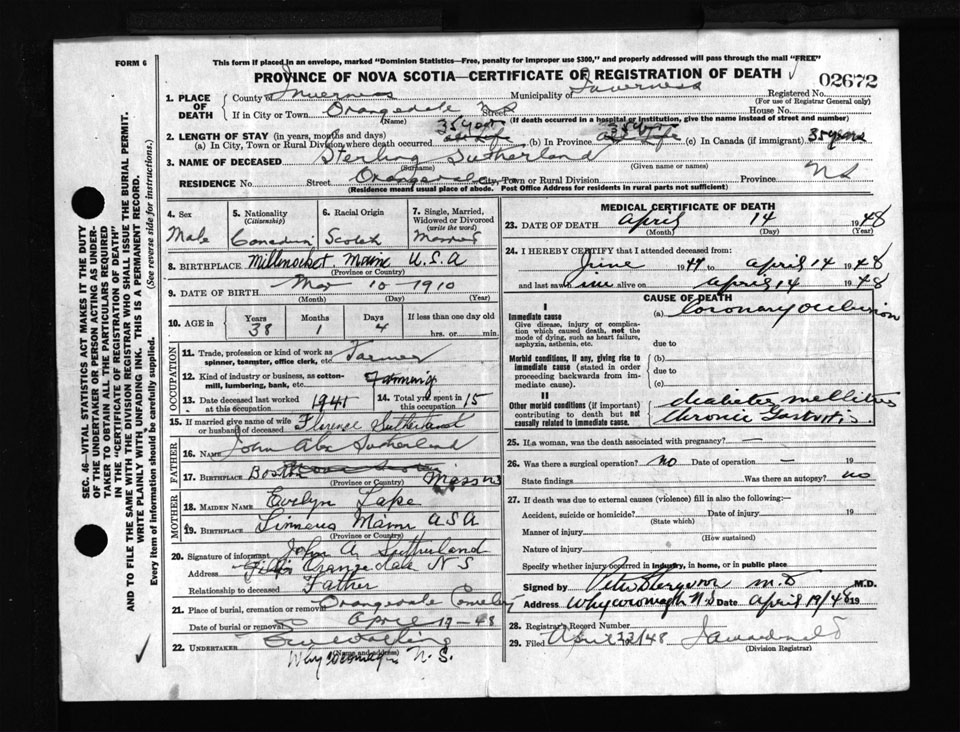 FORM 6
This form if placed in an envelope, marked "Dominion Statistics—Free, penalty for improper use $300," and properly addressed will pass through the mail "FREE"
PROVINCE OF NOVA SCOTIA—CERTIFICATE OF REGISTRATION OF DEATH
02672
1. PLACE OF DEATH
County of Inverness Municipality of Inverness Registered No.
(For use of Registrar General only)
If in City or Town Orangedale NS Street House No.
(Name) (If death occurred in a hospital or institution, give name instead of street and number)
2. LENGTH OF STAY (in years, months and days)
(a) In City, Town or Rural Division where death occurred 35 years (b) In Province 35 years (c) In Canada (if immigrant) 35 years
3. NAME OF DECEASED Sterling Sutherland
(Surname) (Given name or names)
RESIDENCE No. Street Orangedale City, Town or Rural Division Province NS
(Residence means usual place of abode. Post Office Address for residents in rural parts not sufficient)
4. Sex Male
5. Nationality (Citizenship) Canadian
6. Racial Origin Scotch
7. Single, Married, Widowed or Divorced (write the word) Married
8. BIRTHPLACE Millinocket Maine U.S.A
(Province or Country)
9. DATE OF BIRTH Mar 10 1910
(Month) (Day) (Year)
10. AGE in Years 38 Months 1 Days 4 If less than one day hrs. or min.
OCCUPATION
11. Trade, profession or kind of work as spinner, teamster, office clerk, etc. Farmer
12. Kind of industry or business, as cotton-mill, lumbering, bank, etc. Farming
13. Date deceased last worked at this occupation 1941
14. Total yrs. spent in this occupation 15
15. If married give name of wife or husband of deceased Florence Sutherland
FATHER
16. Name John Alex Sutherland
17. Birthplace Boston Mass
(Province or Country)
MOTHER
18. MAIDEN NAME Evelyn Lake
19. Birthplace Linneus Maine
(Province or Country)
20. Signature of informant John A. Sutherland
Address Orangedale N S
Relationship to deceased Father
21. Place of burial, cremation or removal Orangedale Cemetery
Date of burial or removal April 17-48
22. UNDERTAKER
(Name and address)
N. S.
MEDICAL CERTIFICATE OF DEATH
23. DATE OF DEATH April 14 1948
(Month) (Day) (Year)
24. I HEREBY CERTIFY that I attended deceased from:
June 1947 to April 14 1948
and last saw him alive on April 14 1948
CAUSE OF DEATH
I
Immediate cause
Give disease, injury or complication which caused death, not the mode of dying, such as heart failure, asphyxia, asthenia, etc.
(a) Coronary occlusion
due to
Morbid conditions, if any, giving rise to immediate cause (stated in order proceeding backwards from immediate cause).
(b)
due to
(c)
II
Other morbid conditions (if important) contributing to death but not causally related to immediate cause.
diabetes mellitus
Chronic Gastritis.
25. If a woman, was the death associated with pregnancy? —
26. Was there a surgical operation? no Date of operation — 19
State findings Was there an autopsy? no
27. If death was due to external causes (violence) fill in also the following:—
Accident, suicide or homicide? Date of injury 19
(State which)
Manner of injury
(How sustained)
Nature of injury
Specify whether injury occurred in industry, in home, or in public place
Signed by M.D.
Address Whycocomagh N.S Date April 19/48 19
28. Registrar's Record Number
29. Filed April 22/48
(Division Registrar)
SEC. 46—VITAL STATISTICS ACT MAKES IT THE DUTY OF THE UNDERTAKER OR PERSON ACTING AS UNDERTAKER TO OBTAIN ALL THE PARTICULARS REQUIRED IN THE "CERTIFICATE OF REGISTRATION OF DEATH" AND TO FILE THE SAME WITH THE DIVISION REGISTRAR WHO SHALL ISSUE THE BURIAL PERMIT.
WRITE PLAINLY WITH UNFADING INK. THIS IS A PERMANENT RECORD.
Every item of information should be carefully supplied. (See reverse side for instructions.)